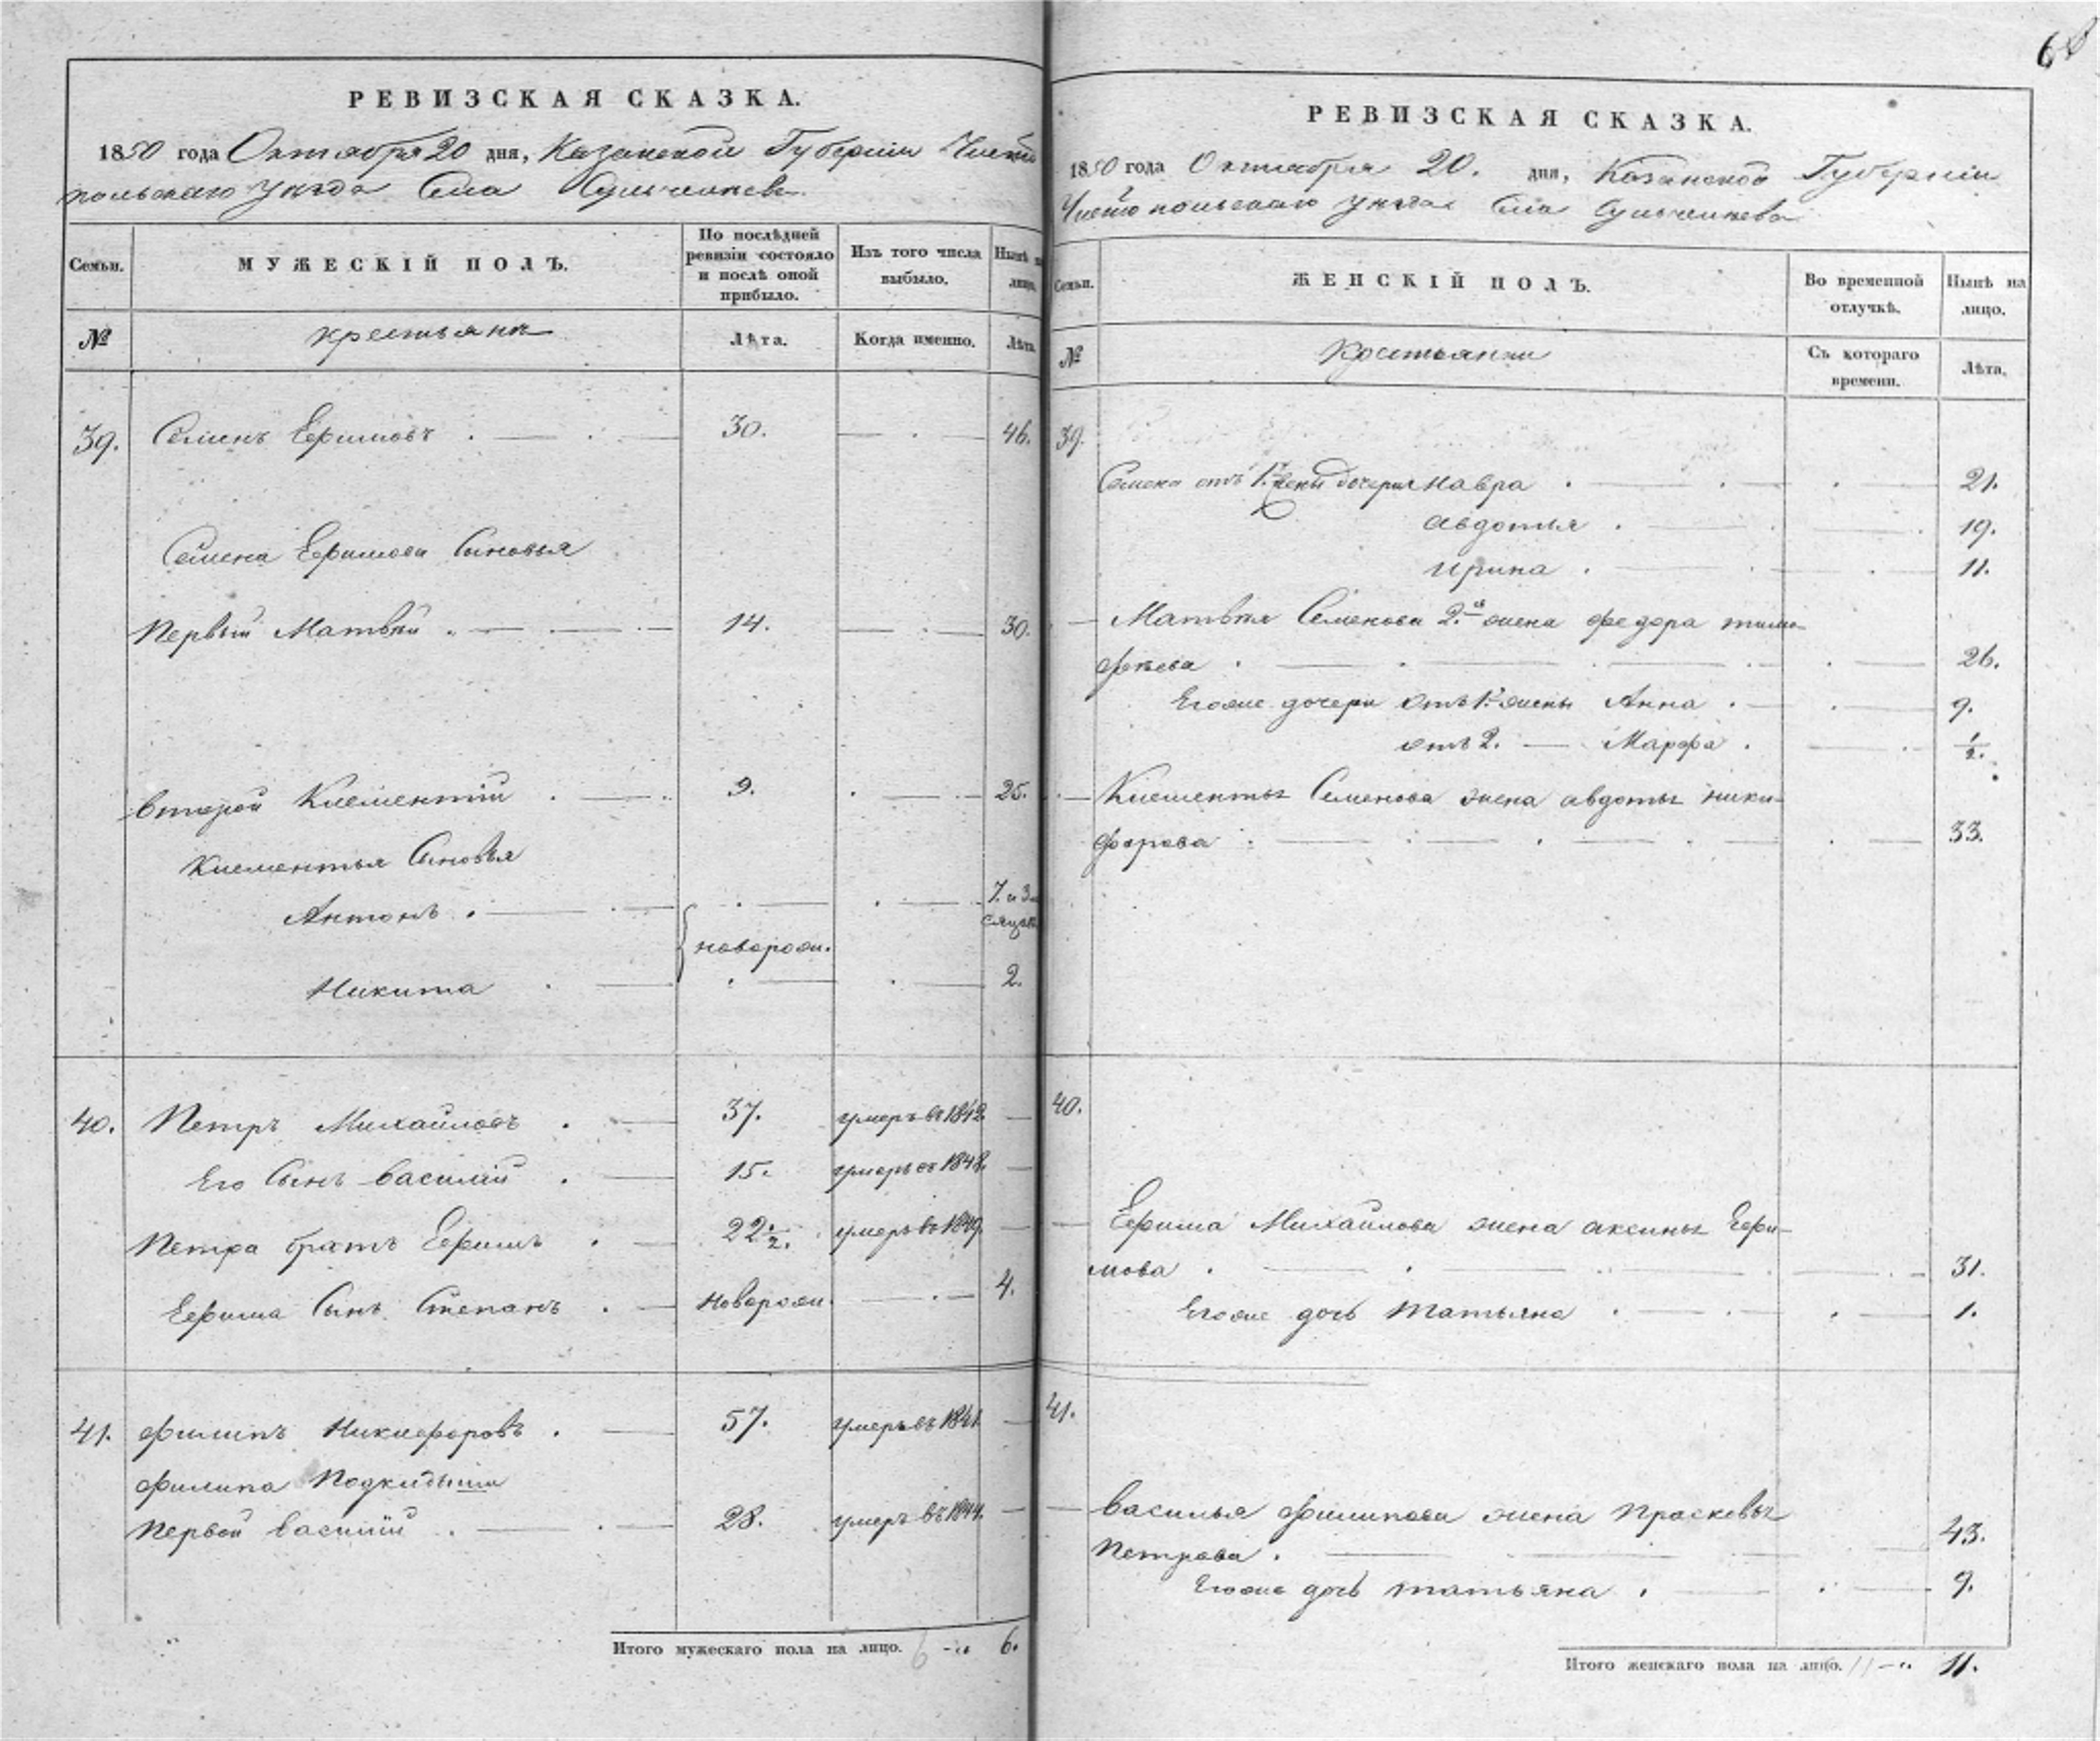 68
РЕВИЗСКАЯ СКАЗКА.
1850 года Октября 20 дня, Казанской Губернiи Чисто
польскаго уѣзда Села
МУЖЕСКIЙ ПОЛЪ.
Семьи.
По послѣдней ревизiи состояло и послѣ оной прибыло.
Изъ того числа выбыло.
Нынѣ на лицо.
№
крестьяне
Лѣта.
Когда именно.
Лѣта.
39. Семенъ Ефимовъ . — . — 30. — . — 46.
Семена Ефимова Сыновья
Первый Матвѣй . — . — 14. — . — 30.
второй Клементiй . — . 9. . — . — 25.
Клементья Сыновья
Антонъ . — . — . — 7. и 3 мѣ
сяцовъ
новорож.
Никита . — . — . — 2.
40. Петръ Михайловъ . — 37. умеръ въ 1842 —
Его Сынъ василiй . — 15. умеръ въ 1848. —
Петра братъ Ефимъ . — 22 1/2. умеръ въ 1849. —
Ефима Сынъ Степанъ . — новорож. — . — 4.
41. Филипъ Никифоровъ . — 57. умеръ въ 1841 —
Филипа Подкидыши
Первой василiй . — . — 28. умеръ въ 1844. —
Итого мужескаго пола на лицо. 6 — 6.
РЕВИЗСКАЯ СКАЗКА.
1850 года Октября 20. дня, Казанской Губернiи
Чистопольскаго уѣзда Села
Семьи.
ЖЕНСКIЙ ПОЛЪ.
Во временной отлучкѣ.
Нынѣ на лицо.
№
Крестьянки
Съ котораго времени.
Лѣта.
39.
Семена отъ 1. жены дочери Мавра . — . — . — 21.
авдотья . — . — 19.
Ирина . — . — 11.
— Матвѣя Семенова 2.я жена федора тимо-
фѣева . — . — . — . — 26.
Егоже дочери отъ 1. жены Анна . — . — 9.
отъ 2. — Марфа . — . 1/2.
— Клементья Семенова жена авдотья ники-
форова . — . — . — . — 33.
40.
— Ефима Михайлова жена аксинья Ефи-
мова . — . — . — . — 31.
Егоже дочь татьяна . — . — . — 1.
41.
— василья Филипова жена Прасковья
Петрова . — . — . — 43.
Егоже дочь татьяна . — . — 9.
Итого женскаго пола на лицо. 11 — 11.